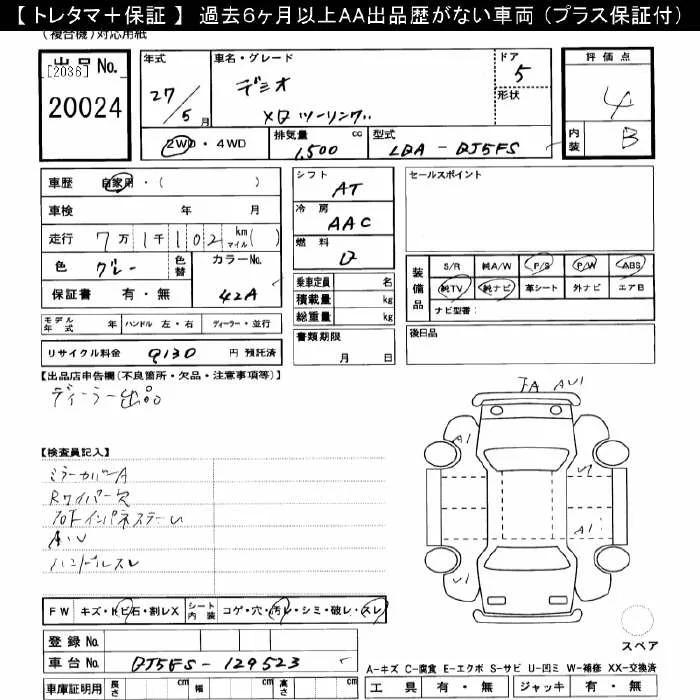 【 トレタマ＋保証 】 過去6ヶ月以上AA出品歴がない車両 (プラス保証付)
(複合機)対応用紙
出品No.
[2036]
20024
年式
27/5月
車名・グレード
デミオ
XD ツーリング
ドア
5
形状
評価点
4
内装 B
2WD・4WD
排気量 cc
1,500
型式
LDA - DJ5FS
車歴 自家用・( )
車検 年 月
走行 7万1千102 km マイル( )
色 グレー 色替 カラーNo.
42A
保証書 有・無
シフト
AT
冷房
AAC
燃料
D
乗車定員 名
積載量 kg
総重量 kg
書類期限
月 日
セールスポイント
装備品 S/R 純A/W P/S P/W ABS
純TV 純ナビ 革シート 外ナビ エアB
ナビ型番:
モデル年式 年 ハンドル 左・右 ディーラー・並行
リサイクル料金 9130 円 預託済
後日品
【出品店申告欄(不良箇所・欠品・注意事項等)】
ディーラー出品
【検査員記入】
ミラーカバーA
Rワイパー欠
AW
ハンドルスレ
FA AU1
A1
A1
U1
FW キズ・トビ石・割レX シート内装 コゲ・穴・汚レ・シミ・破レ・スレ
登録No.
車台No. DJ5FS - 129523
スペア
A-キズ C-腐食 E-エクボ S-サビ U-凹ミ W-補修 XX-交換済
車庫証明用 長さ cm 幅 cm 高さ cm
工具 有・無 ジャッキ 有・無